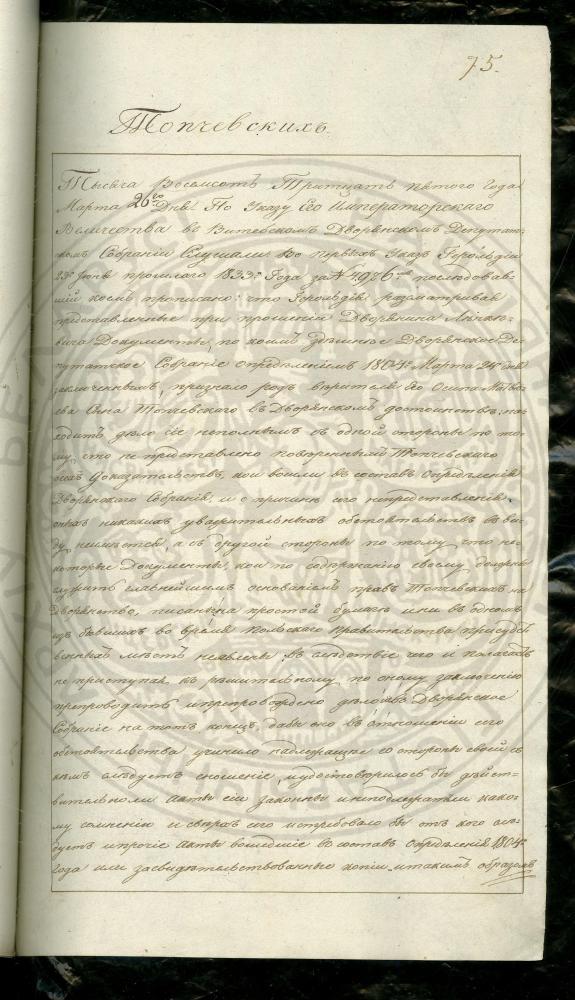 75.
Топчевскихъ.
Тысяча Восемсотъ Тритцать пятого Года
Марта 26го Дня. По Указу Его Императорскаго
Величества въ Витебскомъ Дворянскомъ Депутат-
скомъ Собраніи Слушали: Во первыхъ Указъ Герольдіи
23го Іюня прошлого 1833го Года за № 4986мъ послюдовав-
шій коемъ прописано: что Герольдія разсматривая
представленные при прошеніи Дворянина
вича Документы, по коимъ здешнее Дворянское Де-
путатское Собраніе опредѣленіемъ 1804го Марта 24го дня
заключеннымъ, признало родъ вѣрителя его Осипа Матвѣ-
ева сына Топчевскаго въ Дворянскомъ достоинствѣ; на-
ходитъ дѣло сіе неполнымъ съ одной стороны по то-
му, что не представлено повѣреннымъ Топчевскаго
всѣхъ доказательствъ, кои вошли въ составъ опредѣленія
Дворянскаго Собранія, и о причинѣ сего непредставленія
оныхъ никакихъ уверительныхъ обстоятельствъ въ ви-
ду неимѣется, а съ другой стороны по тому что не-
которые Документы, кои по содержанію своему должны
служить сильнейшимъ основаніемъ правъ Топчевскихъ на
дворянство, писаны на простой бумагѣ и ни въ одномъ
изъ бывшихъ во время Польскаго правительства присудст-
венныхъ мѣстъ неявлены въ слѣдствіе чего и полагаетъ
не приступая къ рѣшительному по оному заключенію
препроводить и препровождено дѣло въ Дворянское
Собраніе на тотъ конецъ дабы оно въ отношеніи сего
обстоятельства учинило надлежащее со стороны своей съ
кѣмъ слѣдуетъ сношеніе, удостоверилось бы дѣйст-
вительноли акты сіи законны и неподлежатъ како-
му сомненію и сверхъ сего истребовало бы отъ кого слѣ-
дуетъ и прочіе акты вошедшіе въ составъ опредѣленія 1804го
Года или засвидѣтельствованные копіи и такимъ образомъ